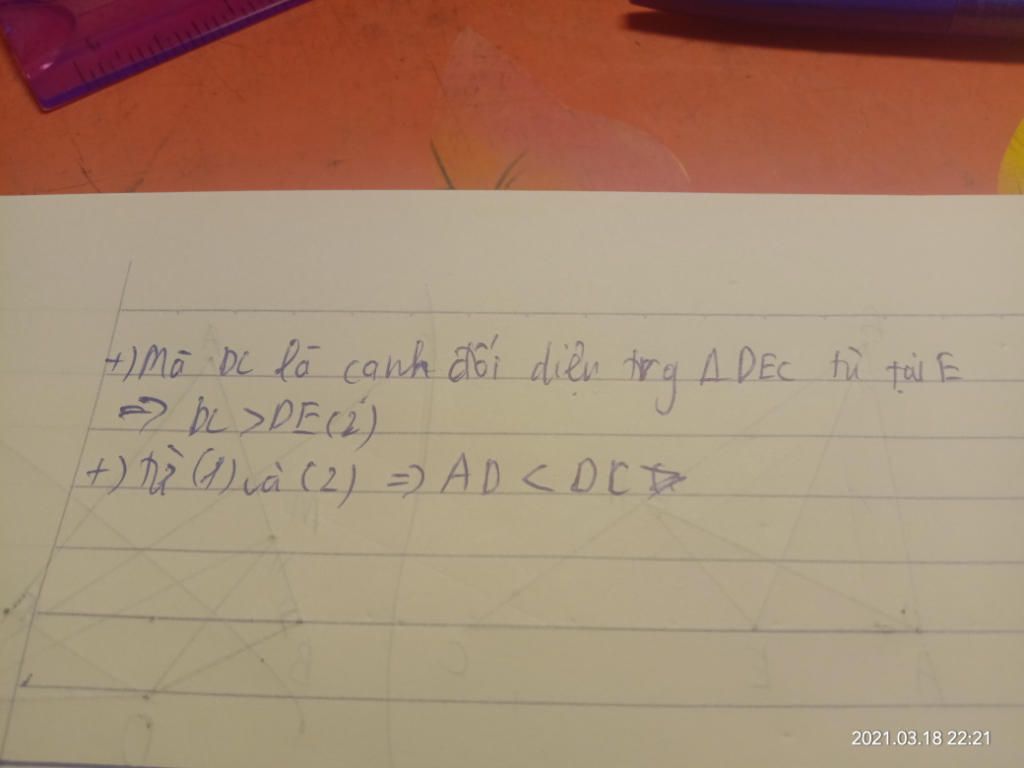 +) Mà DC là cạnh đối diện trg Δ DEC tù tại E
=> DC > DE (2)
+) Từ (1) và (2) => AD < DC
2021.03.18 22:21